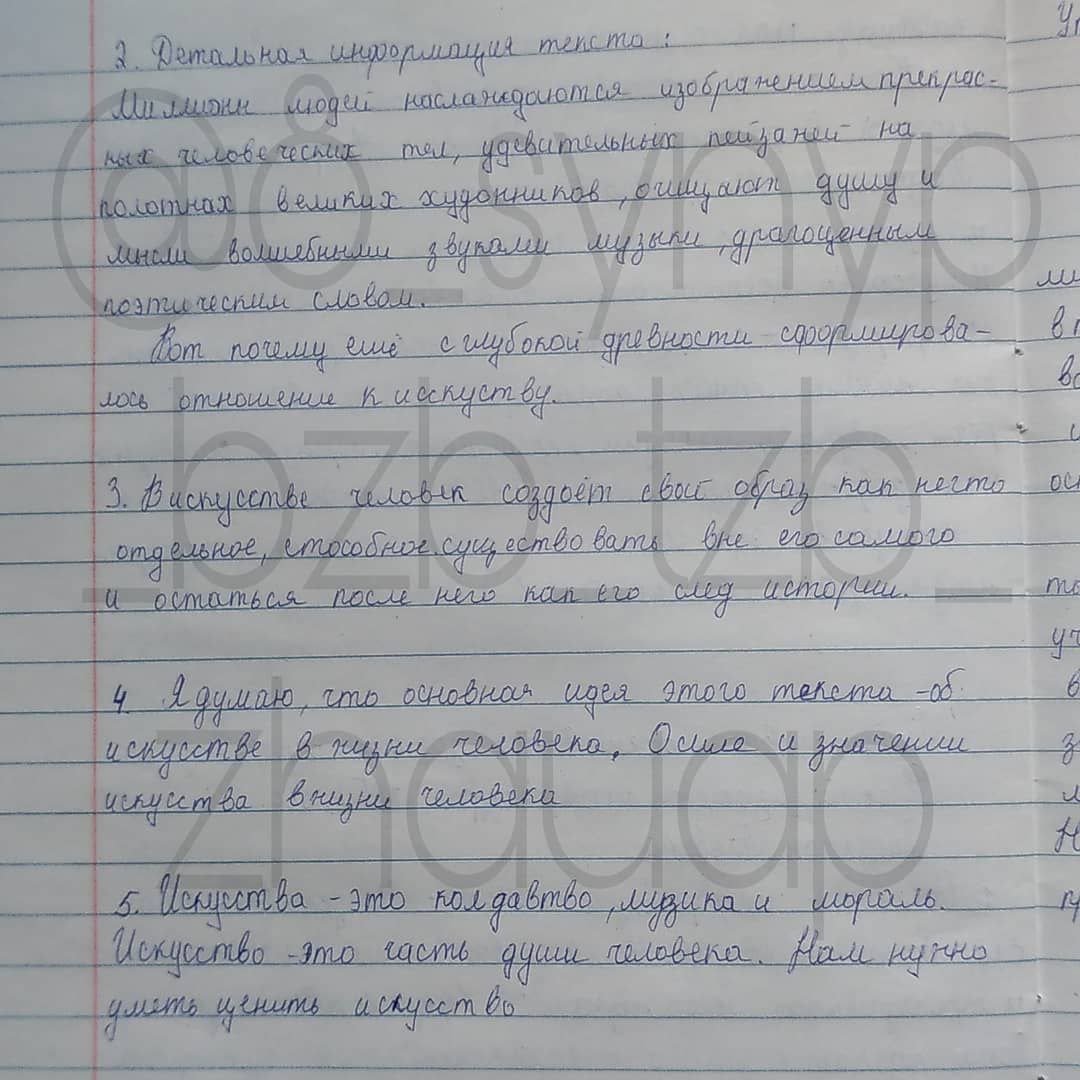 2. Детальная информация текста:
Миллионы людей наслаждаются изображением прекрас-
ных человеческих тел, удевительных пейзажей на
полотнах великих художников, очищают душу и
мысли волшебными звуками музыки, драгоценным
поэтическим словом.
Вот почему ещё с глубокой древности сформирова-
лось отношение к исскуству.
3. В искусстве человек создаёт свой образ как нечто
отдельное, способное существовать вне его самого
и остаться после него как его след истории.
4. Я думаю, что основная идея этого текста - об
искусстве в жизни человека. О силе и значении
искусства в жизни человека
5. Искусства - это колдавтво, музика и мораль.
Искусство - это часть души человека. Нам нужно
уметь ценить искусство
@8_synyp
_bzb_tzb_
zhauap